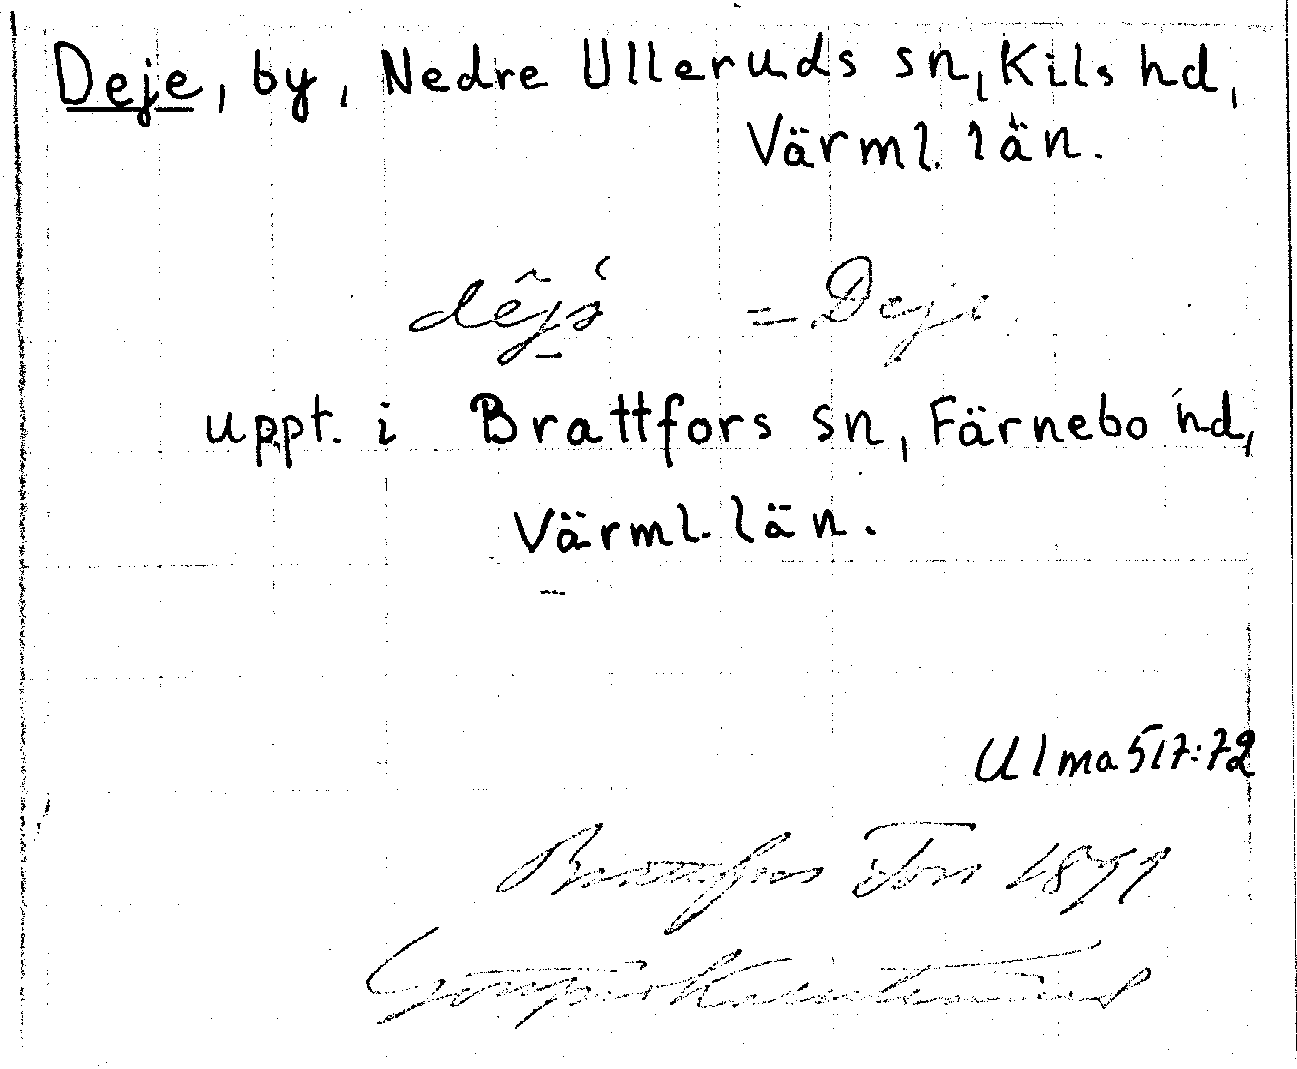 Deje, by, Nedre Ulleruds sn, Kils hd,
Värml. län.
= Deje
uppt. i Brattfors sn, Färnebo hd,
Värml. län.
Ulma 517:72
Brattfors